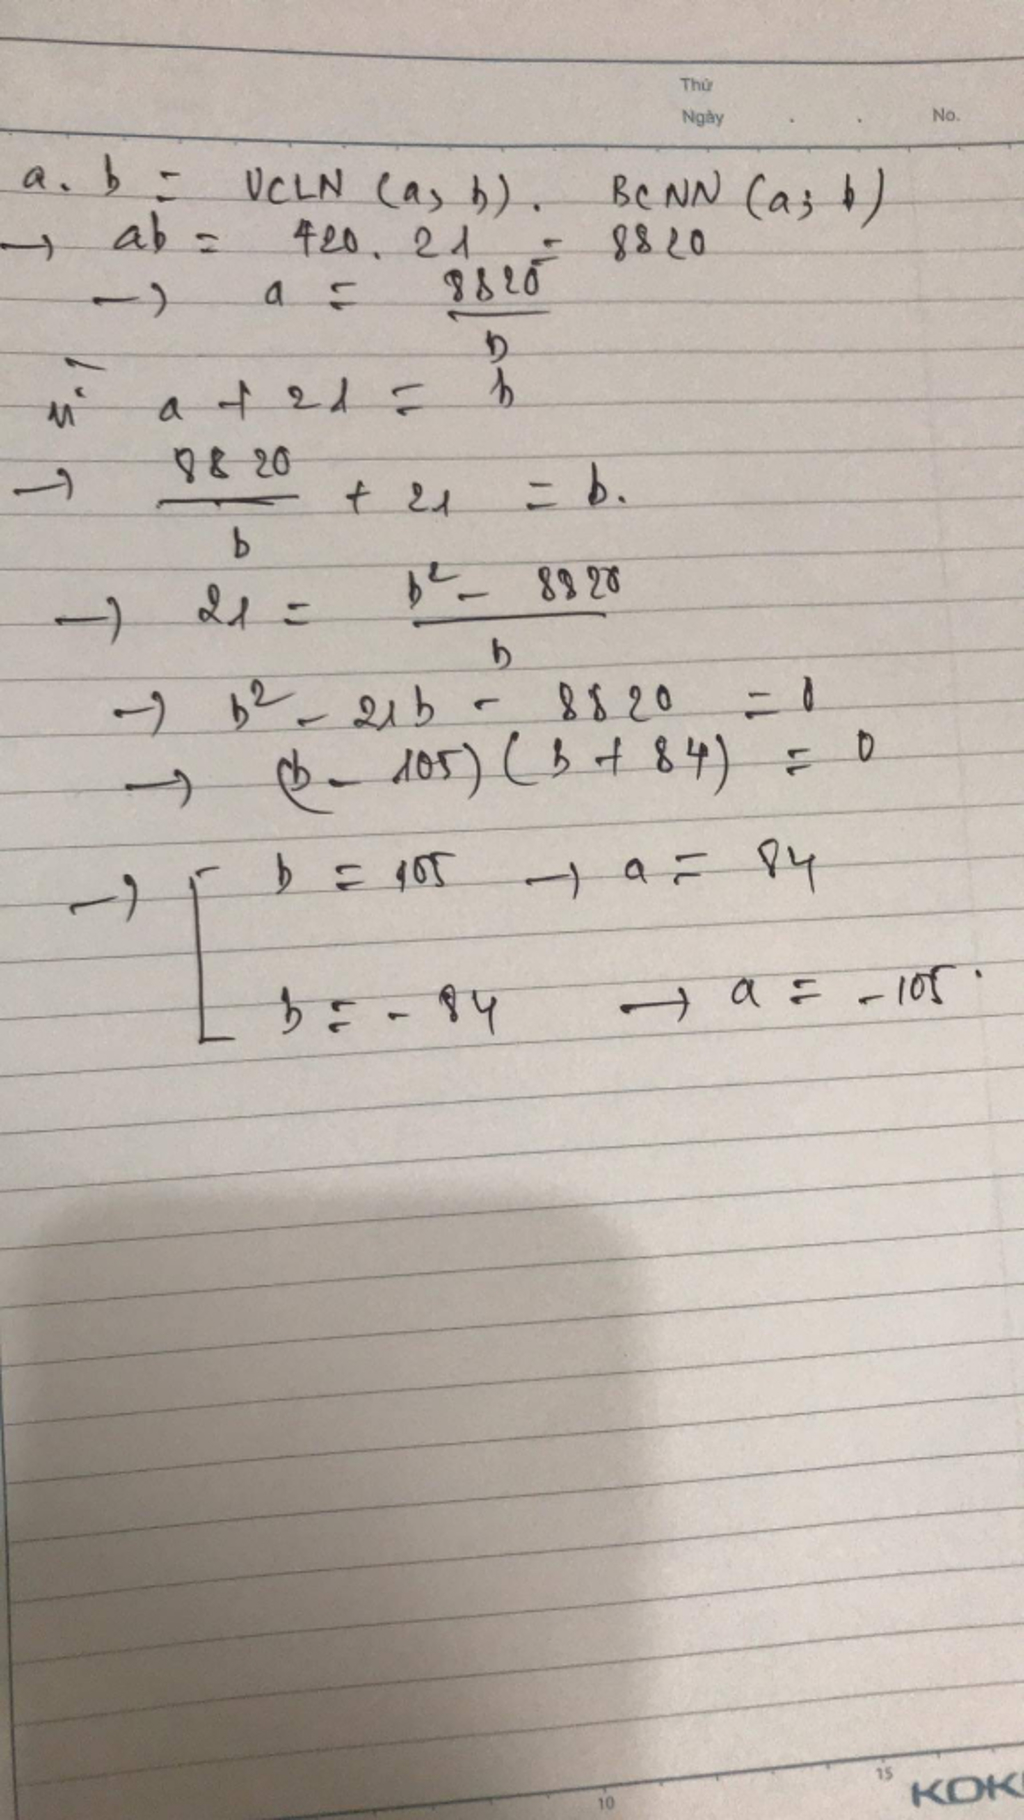 Thứ
Ngày . . No.
a. b = ƯCLN (a; b). BCNN (a; b)
→ ab = 420. 21 = 8820
→ a = 8820/b
vì a + 21 = b
→ 8820/b + 21 = b.
→ 21 = (b² - 8820)/b
→ b² - 21b - 8820 = 0
→ (b - 105)(b + 84) = 0
→ [ b = 105 → a = 84
b = - 84 → a = -105.
10 15